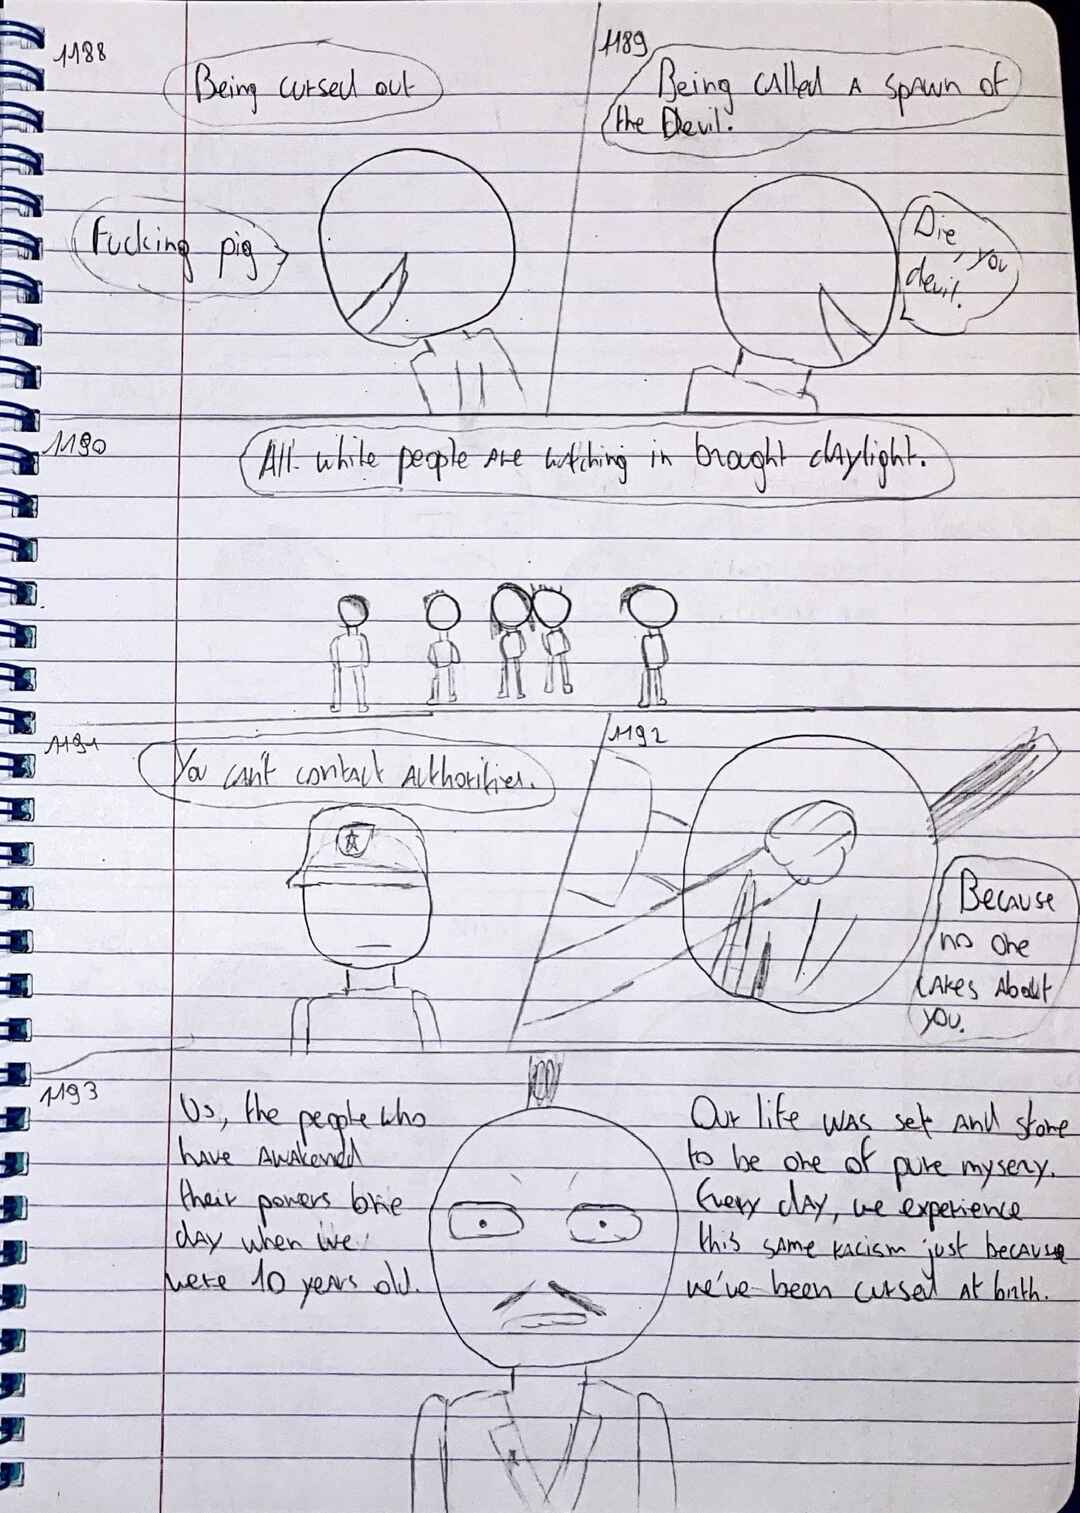 1188
Being cursed out
Fucking pig
1189
Being called a spawn of
the Devil.
Die, you
devil.
1190
All white people are watching in brought daylight.
1191
You can't contact authorities.
1192
Because
no one
cares about
you.
1193
Us, the people who
have awakened
their powers one
day when we
were 10 years old.
Our life was set and stone
to be one of pure mysery.
Every day, we experience
this same racism just because
we've been cursed at birth.